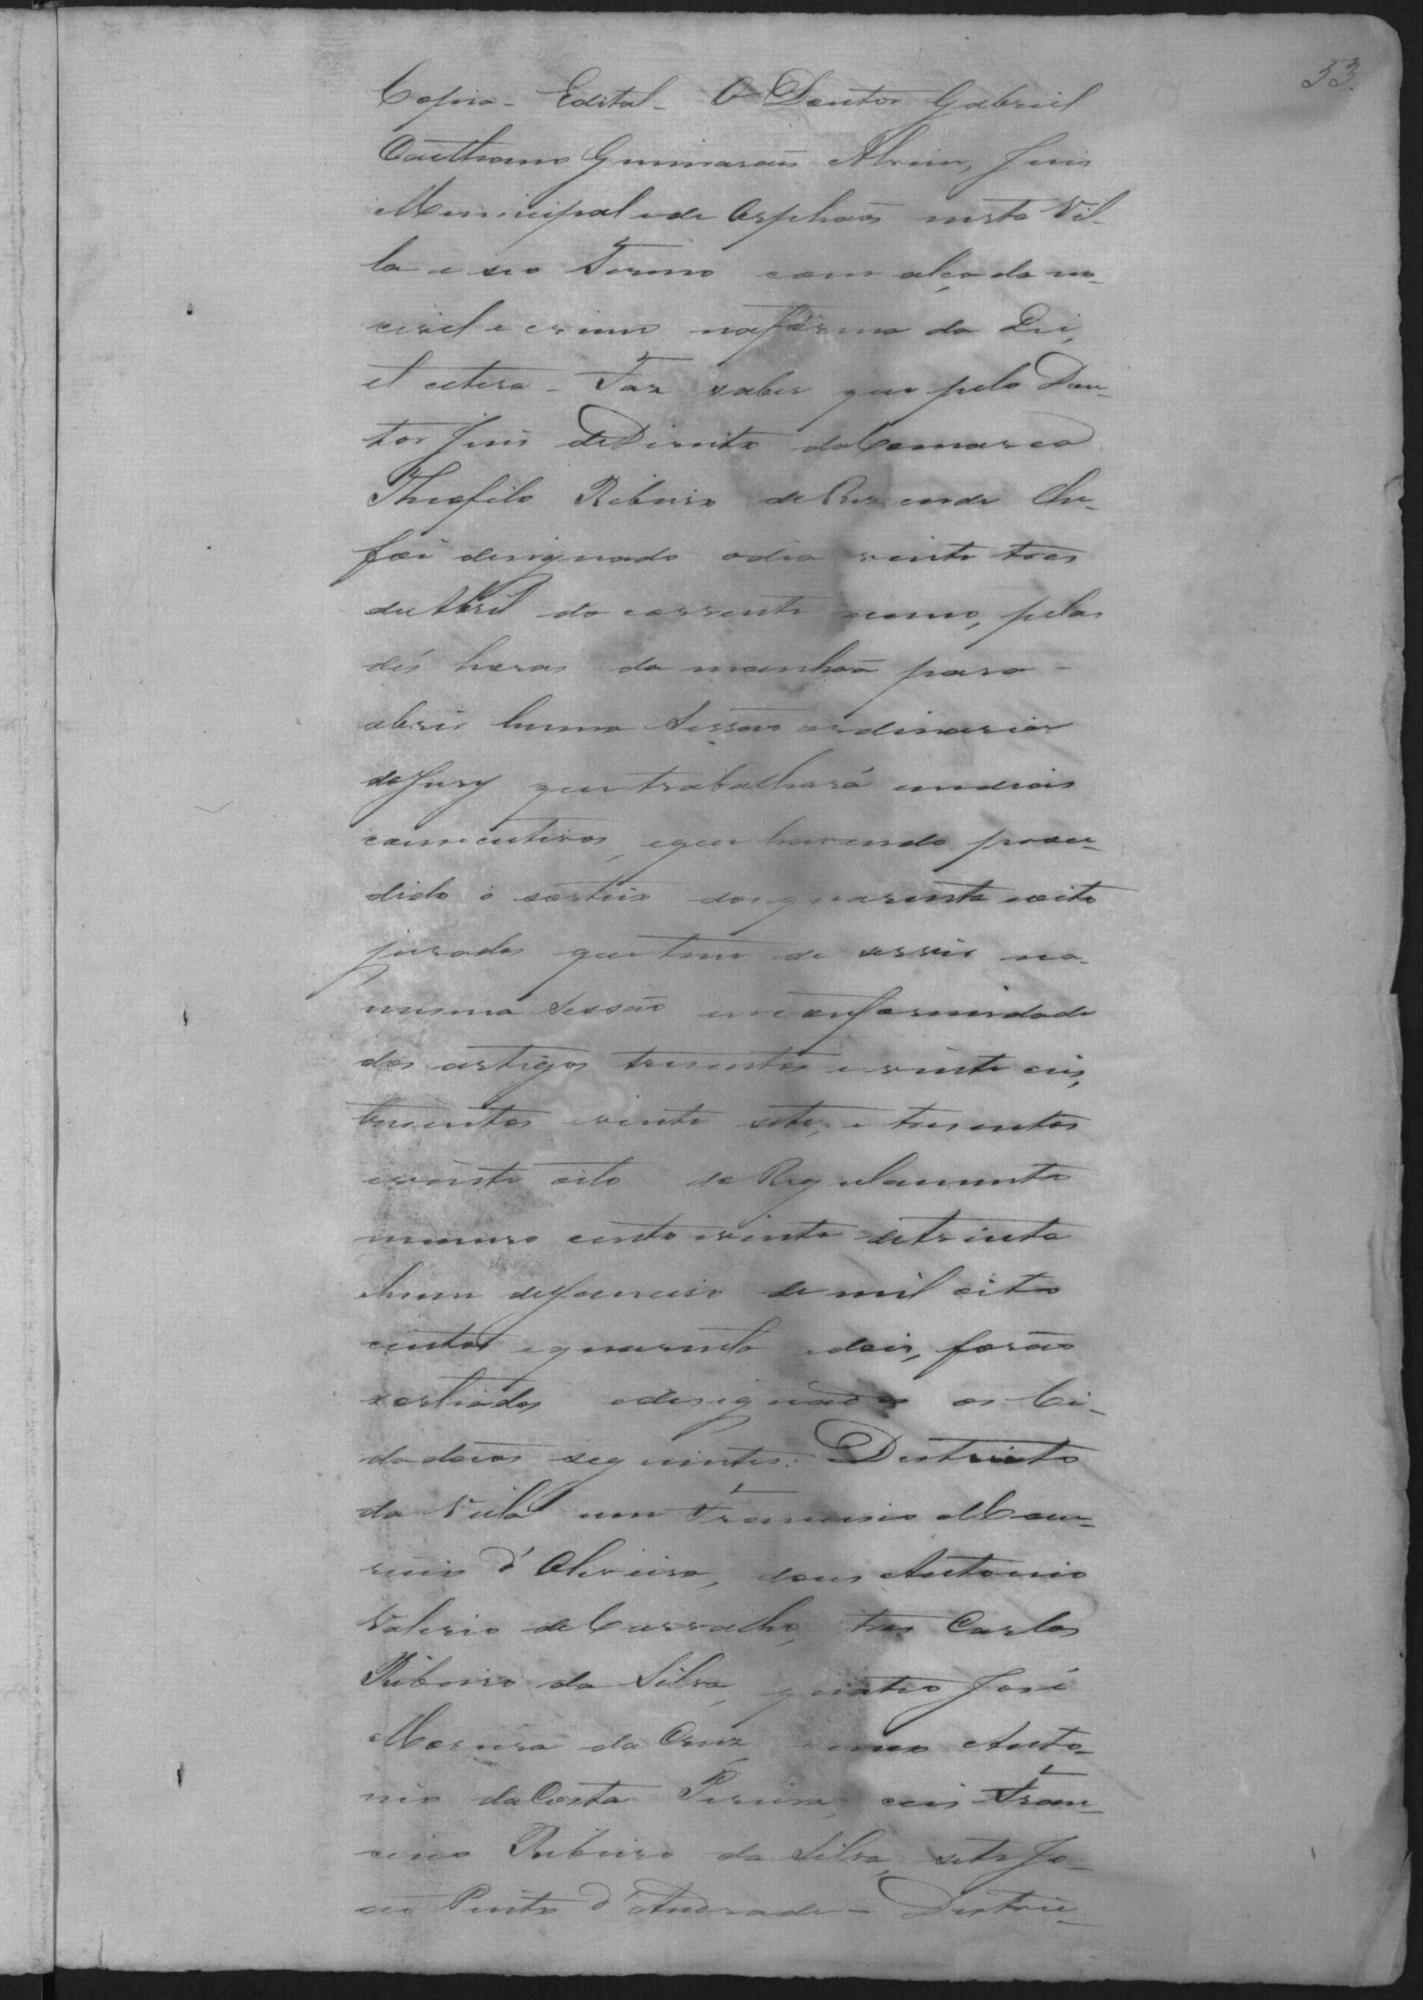 53
Copia - Edital - O Doutor Gabriel
Caethano Guimarães Alvim, Juis
Municipal e de Orphãos nesta Vil-
la e seo Termo com alçada no
civel e crime na fórma da Lei,
et cetera - Faz saber que pelo Dou-
tor Juis de Direito da Comarca
Theofilo Ribeiro de Rezende lhe
foi designado o dia vinte tres
de Abril do corrente anno, pelas
dés horas da manhãa para -
abrir huma Sessão ordinaria
do Jury que trabalhará em dias
consecutivos, e que havendo proce-
dido o sorteio dos quarenta e oito
jurados que tem de servir na
mesma Sessão em conformidade
dos artigos tresentos e vinte ceis,
tresentos e vinte sete, e tresentos
e vinte oito do Regulamento
numero cento e vinte de trinta
hum de Janeiro de mil oito
centos e quarenta e dois, forão
sortiados e designados os Ci-
dadãos seguintes: Districto
da Villa um Francisco
d'Oliveira, dous Antonio
Valerio de Carvalho, tres Carlos
Ribeiro da Silva, quatro José
Moreira da Cruz, cinco Anto-
nio da Costa Pereira, ceis Fran-
cisco Ribeiro da Silva, sete Jo-
ão Pinto d'Andrade - Distric-